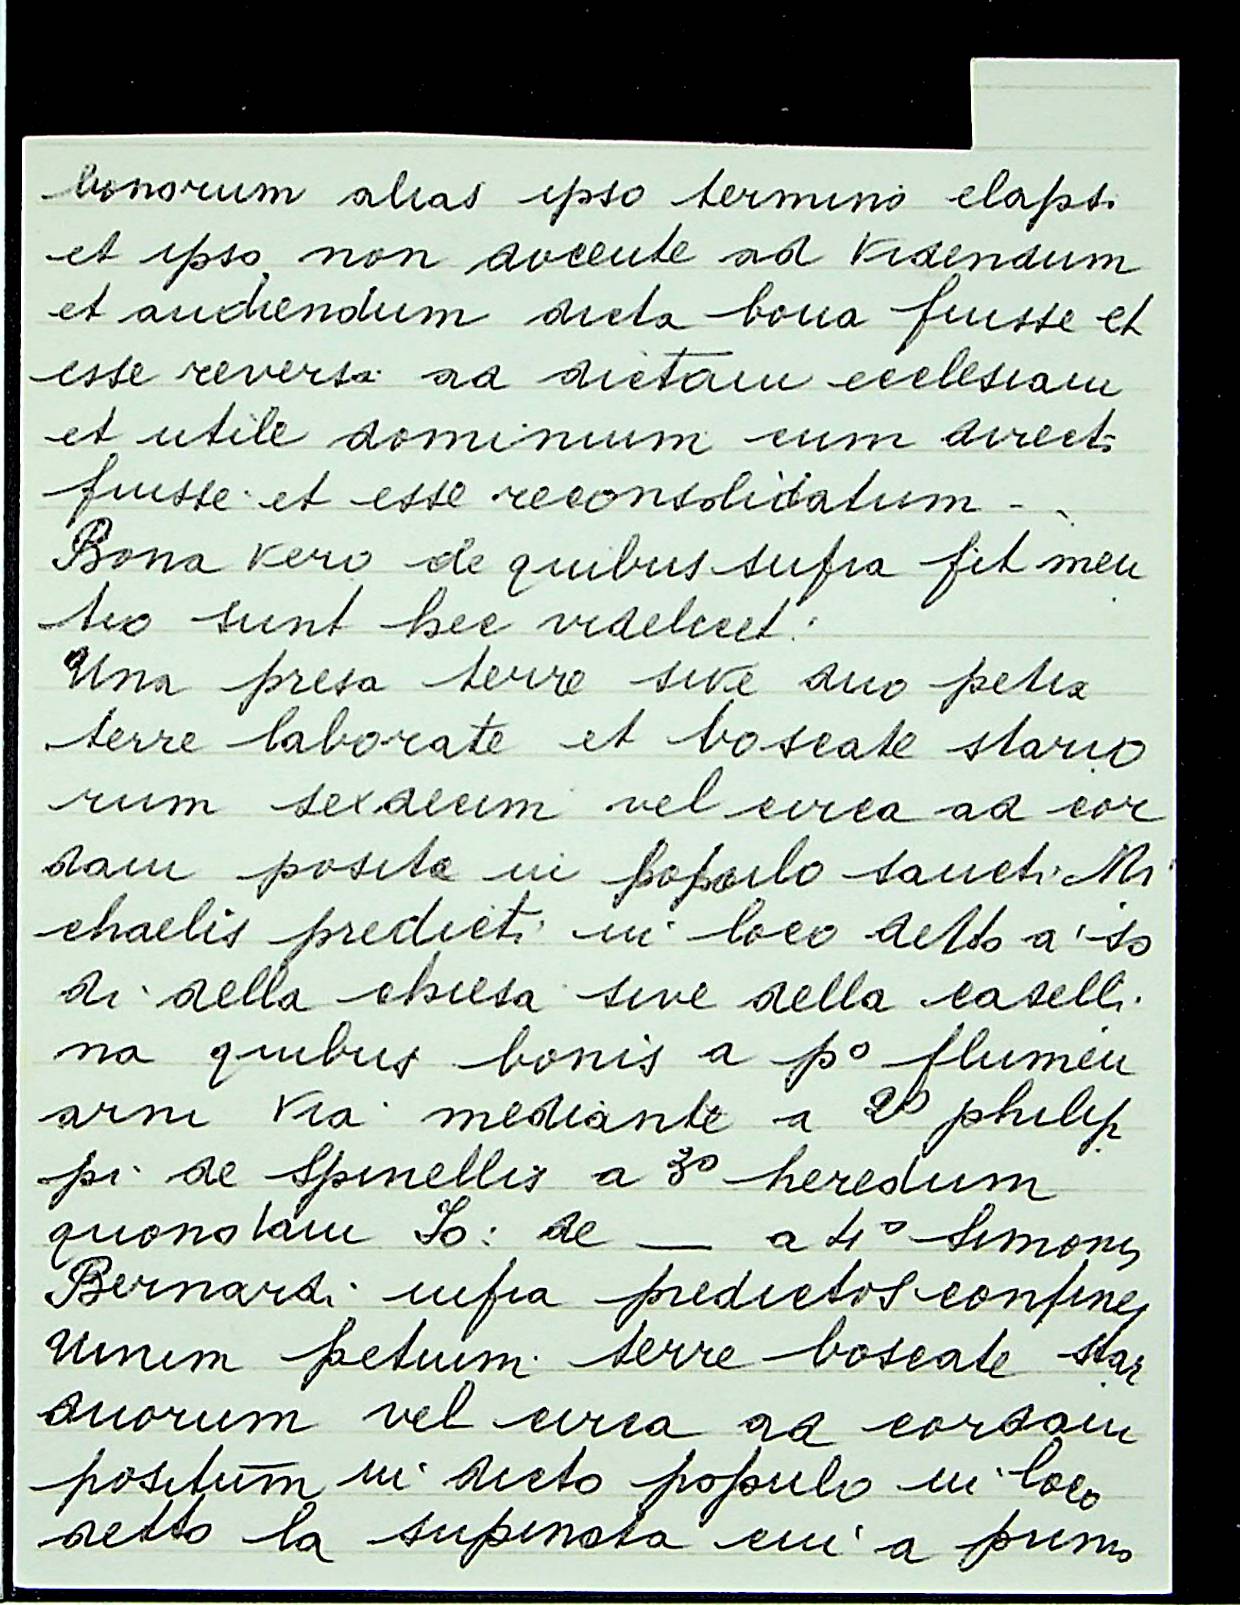 bonorum alias ipso termino elapsi
et ipso non docente ad videndum
et audiendum dicta bona fuisse et
esse reversa ad dictam ecclesiam
et utile dominium cum directi
fuisse et esse reconsolidatum - -
Bona vero de quibus supra fit men
tio sunt hec videlicet:
Una presa terre sive duo petia
terre laborate et boscate stario
rum sexdecim vel circa ad cor
dam posita in populo sancti Mi
chaelis predicti in loco detto a' so
di della chiesa sive della caselli
na quibus bonis a po flumen
arni via mediante a 2o philip
pi de Spinellis a 3o heredum
quondam Jo: de — a 4o Simonis
Bernardi infra predictos confines
Unum petium terre boscate star
duorum vel circa ad cordam
positum in dicto populo in loco
detto la supinata cui a primo